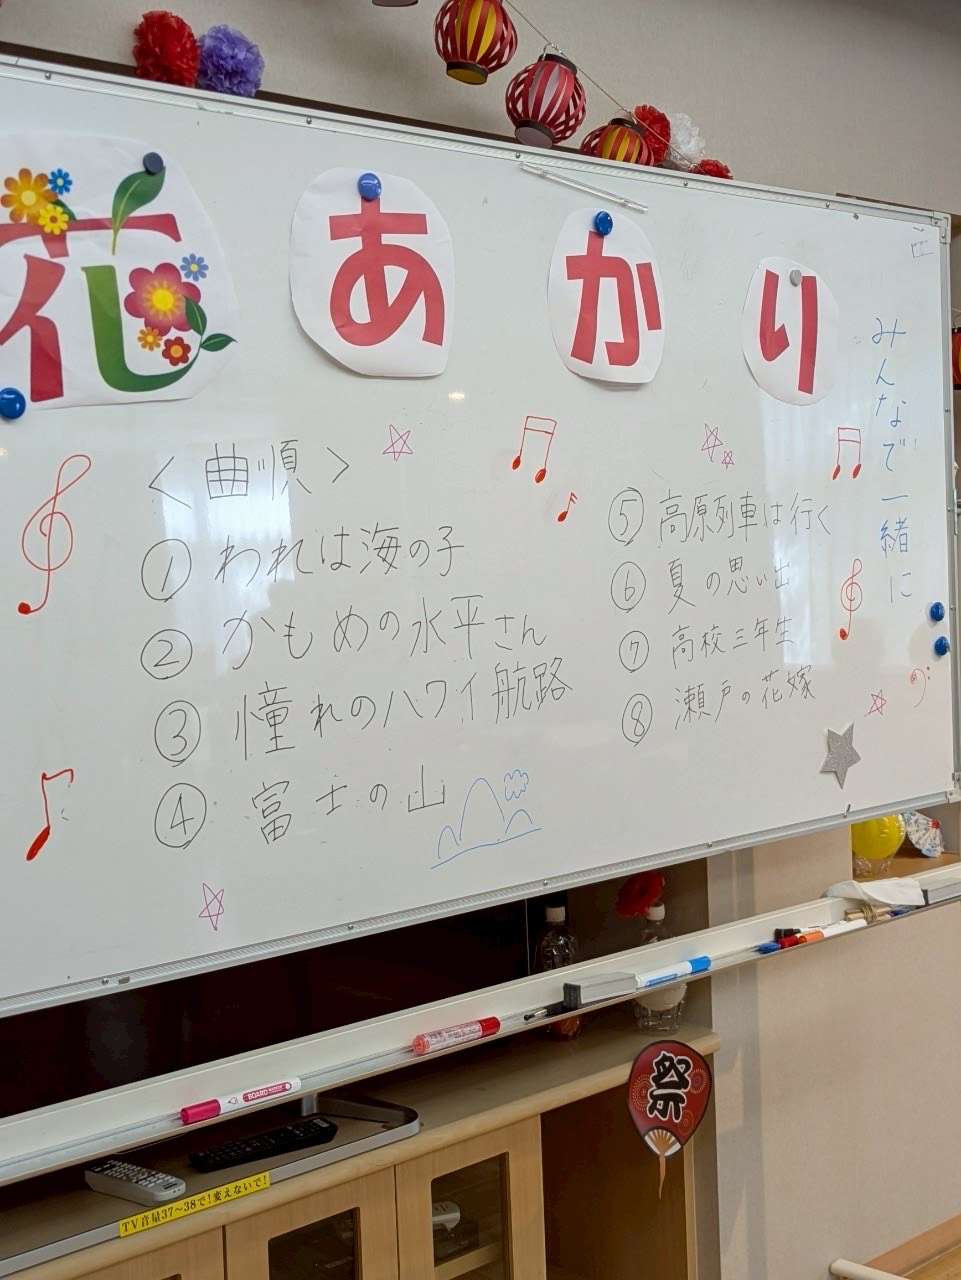 花あかり
みんなで一緒に
<曲順>
① われは海の子
② かもめの水平さん
③ 憧れのハワイ航路
④ 富士の山
⑤ 高原列車は行く
⑥ 夏の思い出
⑦ 高校三年生
⑧ 瀬戸の花嫁
祭
BOARD
TV音量37~38で!変えないで!